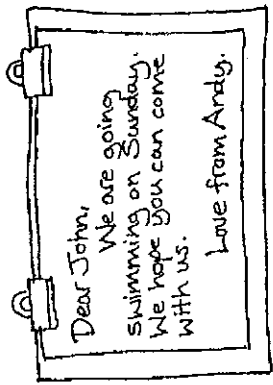 Dear John,
We are going
swimming on Sunday.
We hope you can come
with us.
Love from Andy.